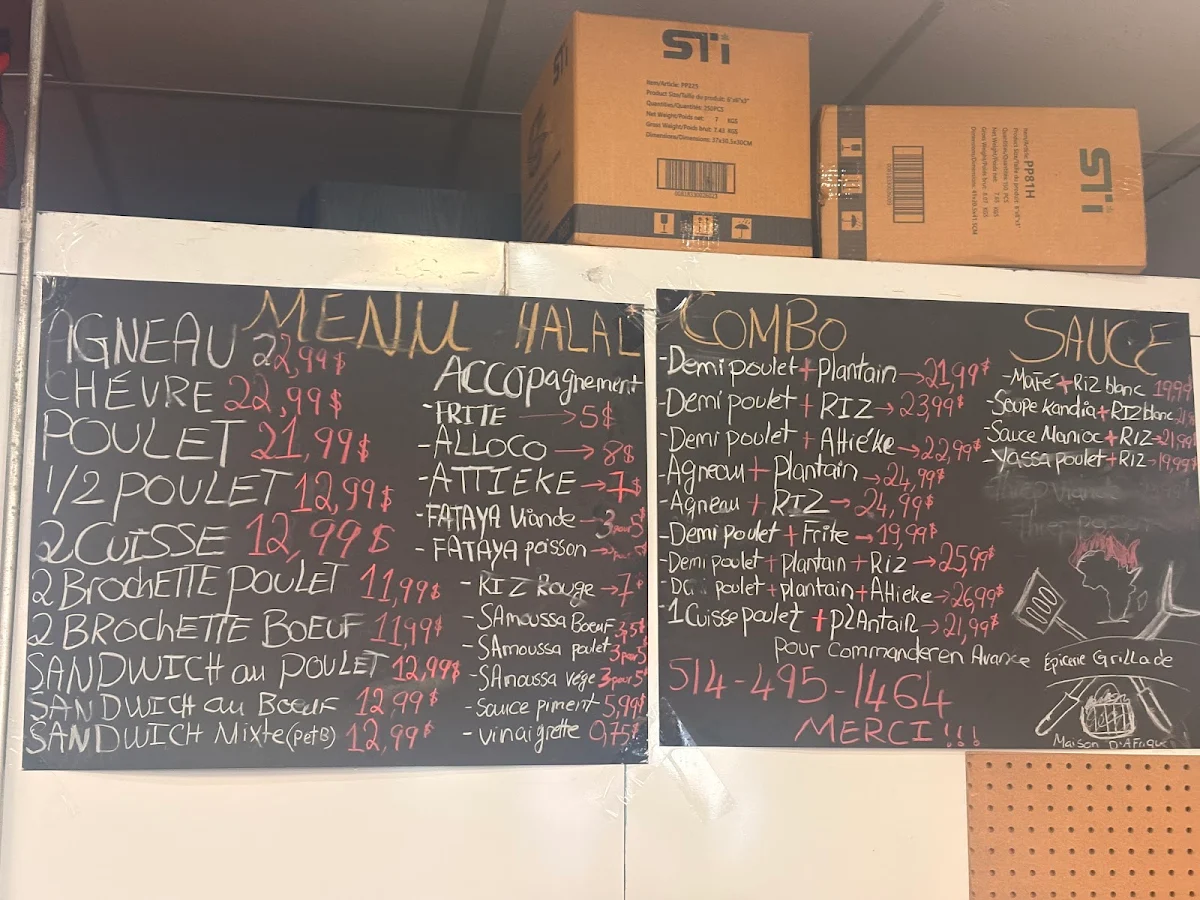 STi
Item/Article: PP225
Product Size/Taille du produit: 6"x6"x3"
Quantities/Quantités: 250PCS
Net Weight/Poids net: 7 KGS
Gross Weight/Poids brut: 7.43 KGS
STi
STi
Item/Article: PP81H
MENU HALAL
AGNEAU 22,99$
CHÉVRE 22,99$
POULET 21,99$
1/2 POULET 12,99$
2 CUISSE 12,99$
2 BrochETTE POULET 11,99$
2 BROchETTE BOEUF 11,99$
SANDWICH au POULET 12,99$
SANDWICH au BOEUF 12,99$
SANDWICH Mixte (petB) 12,99$
ACCOpagnement
-FRITE → 5$
-ALLOCO → 8$
-ATTIEKE → 7$
-FATAYA Viande → 3 pour 5$
-FATAYA poisson →
-RIZ Rouge → 7$
-SAmoussa Boeuf
-SAmoussa poulet 3 pour 5$
-SAmoussa vége 3 pour 5$
-Sauce piment 5,99$
-vinaigrette 0,75$
COMBO
-Demi poulet + Plantain → 21,99$
-Demi poulet + RIZ → 23,99$
-Demi poulet + Attiéke → 22,99$
-Agneau + Plantain → 24,99$
-Agneau + RIZ → 24,99$
-Demi poulet + Frite → 19,99$
-Demi poulet + plantain + Riz → 25,99$
poulet + plantain + Attieke → 26,99$
-1 Cuisse poulet + plAntain → 21,99$
pour Commander en Avance
514-495-1464
MERCI!!!
SAUCE
-Mafé + Riz blanc 19,99$
-Soupe kandia + RIZ blanc
-Sauce Manioc + RIZ → 21,99$
-Yassa poulet + RIZ → 19,99$
Épicerie Grillade
Maison D'Afrique